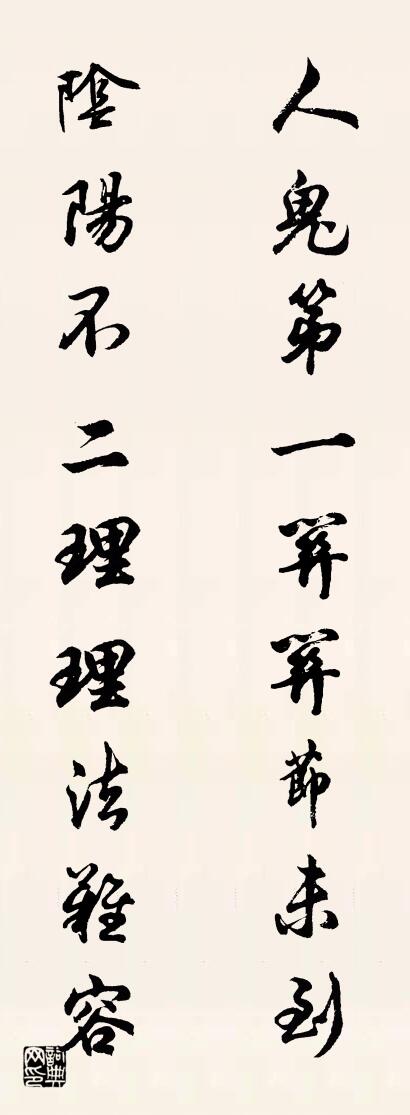 人鬼第一関関節未到
陰陽不二理理法難容
詞典网印